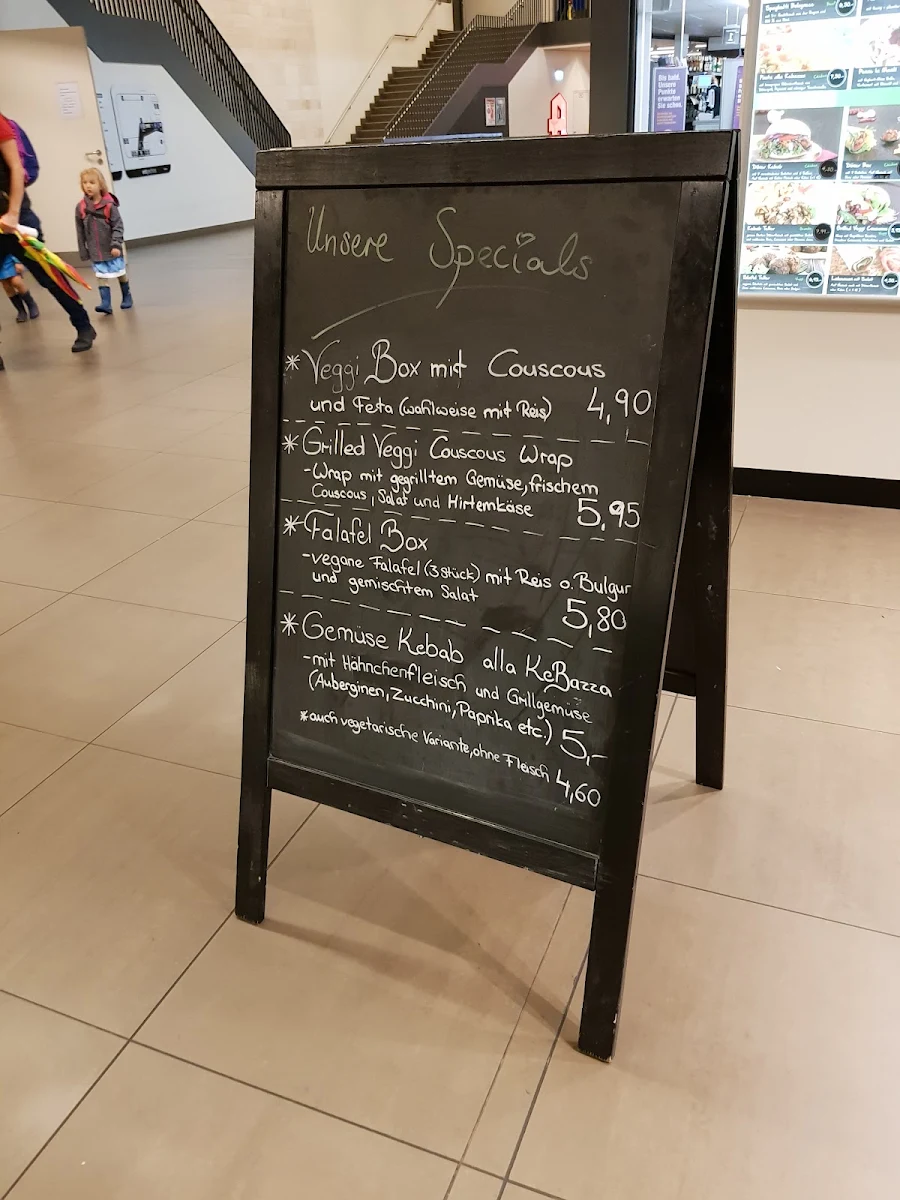 Unsere Specials
*Veggi Box mit Couscous
und Feta (wahlweise mit Reis) 4,90
*Grilled Veggi Couscous Wrap
-Wrap mit gegrilltem Gemüse, frischem
Couscous, Salat und Hirtenkäse 5,95
*Falafel Box
-vegane Falafel (3 Stück) mit Reis o. Bulgur
und gemischtem Salat
5,80
*Gemüse Kebab alla KeBazza
-mit Hähnchenfleisch und Grillgemüse
(Auberginen, Zucchini, Paprika etc.) 5,-
*auch vegetarische Variante, ohne Fleisch 4,60